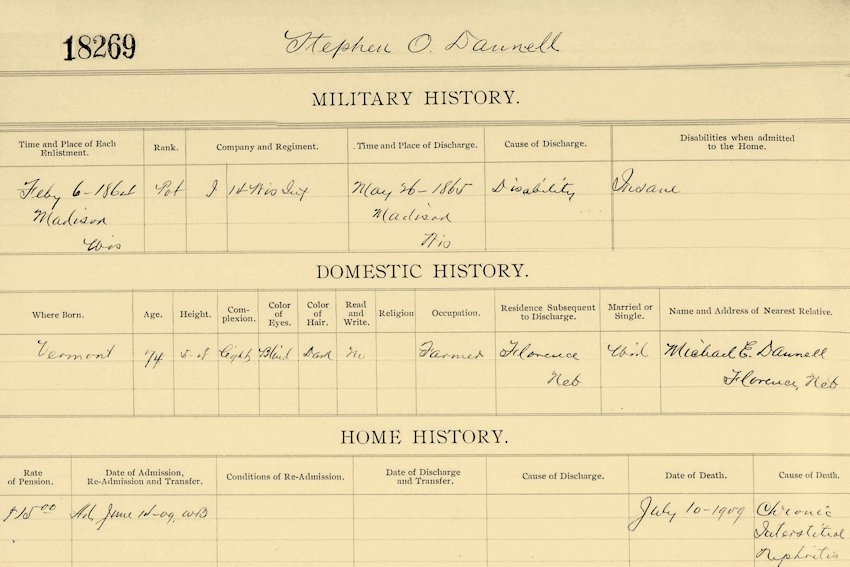 18269 Stephen O. Dannell
MILITARY HISTORY.
Time and Place of Each Enlistment. Rank. Company and Regiment. Time and Place of Discharge. Cause of Discharge. Disabilities when admitted to the Home.
Feby 6-1864 I Wis Inf May 26-1865 Disability Insane
Madison Madison
Wis Wis
DOMESTIC HISTORY.
Where Born. Age. Height. Complexion. Color of Eyes. Color of Hair. Read and Write. Religion Occupation. Residence Subsequent to Discharge. Married or Single. Name and Address of Nearest Relative.
Vermont 74 5-8 Light Dark Farmer Florence Wid Michael E. Dannell
Neb Florence, Neb
HOME HISTORY.
Rate of Pension. Date of Admission, Re-Admission and Transfer. Conditions of Re-Admission. Date of Discharge and Transfer. Cause of Discharge. Date of Death. Cause of Death.
$15 00 June July 10-1909 Chronic
Interstitial
Nephritis